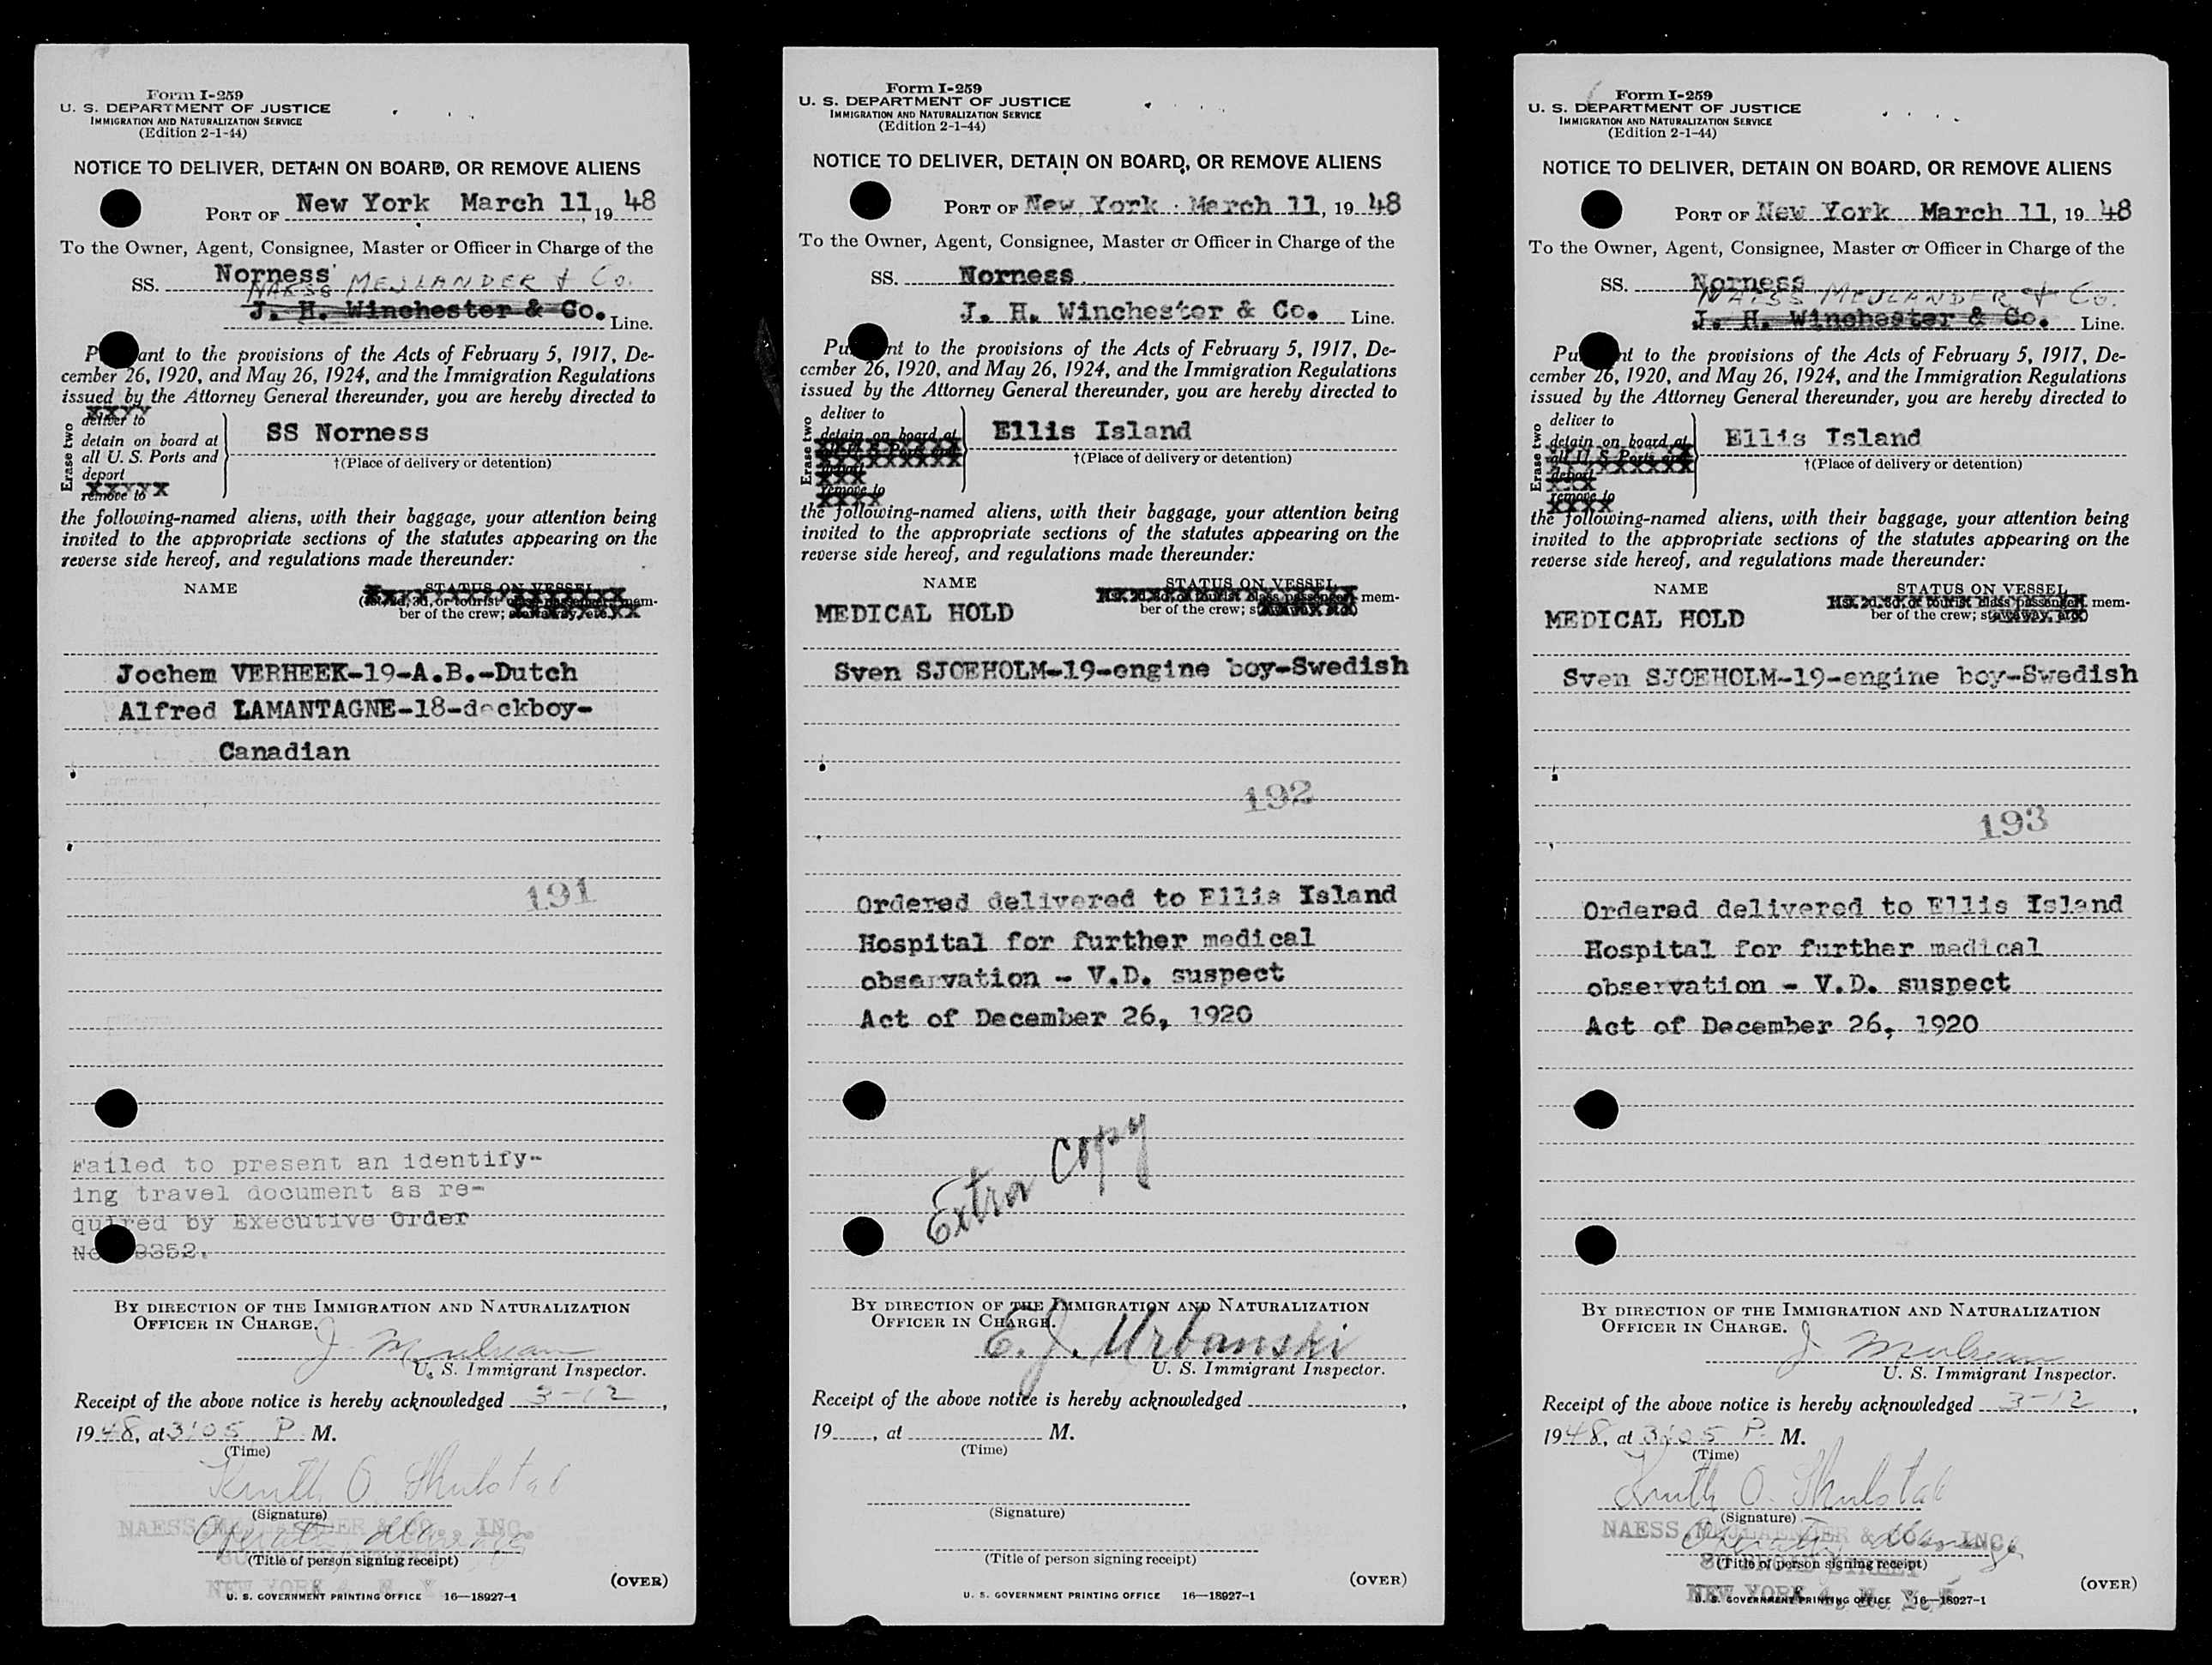 Form I-259
U. S. DEPARTMENT OF JUSTICE
IMMIGRATION AND NATURALIZATION SERVICE
(Edition 2-1-44)
NOTICE TO DELIVER, DETAIN ON BOARD, OR REMOVE ALIENS
PORT OF New York March 11, 19 48
To the Owner, Agent, Consignee, Master or Officer in Charge of the
SS. Norness
NAESS MEJLANDER & Co.
J. H. Winchester & Co. Line.
ant to the provisions of the Acts of February 5, 1917, De-
cember 26, 1920, and May 26, 1924, and the Immigration Regulations
issued by the Attorney General thereunder, you are hereby directed to
Erase two
deliver to
detain on board at
all U. S. Ports and
deport
remove to
SS Norness
†(Place of delivery or detention)
the following-named aliens, with their baggage, your attention being
invited to the appropriate sections of the statutes appearing on the
reverse side hereof, and regulations made thereunder:
NAME STATUS ON VESSEL
mem-
ber of the crew; stowaway, etc.)
Jochem VERHEEK-19-A.B.-Dutch
Alfred LAMANTAGNE-18-deckboy-
Canadian
191
Failed to present an identify-
ing travel document as re-
quired by Executive Order
9352.
BY DIRECTION OF THE IMMIGRATION AND NATURALIZATION
OFFICER IN CHARGE.
U. S. Immigrant Inspector.
Receipt of the above notice is hereby acknowledged 3-12,
1948, at 3:05 P. M.
(Time)
(Signature)
NAESS & CO., INC.
(Title of person signing receipt)
NEW YORK 4, N. Y.
(OVER)
U. S. GOVERNMENT PRINTING OFFICE 16—18927-1
Form I-259
U. S. DEPARTMENT OF JUSTICE
IMMIGRATION AND NATURALIZATION SERVICE
(Edition 2-1-44)
NOTICE TO DELIVER, DETAIN ON BOARD, OR REMOVE ALIENS
PORT OF New York March 11, 19 48
To the Owner, Agent, Consignee, Master or Officer in Charge of the
SS. Norness
J. H. Winchester & Co. Line.
nt to the provisions of the Acts of February 5, 1917, De-
cember 26, 1920, and May 26, 1924, and the Immigration Regulations
issued by the Attorney General thereunder, you are hereby directed to
Erase two
deliver to
detain on board at
all U. S. Ports and
deport
remove to
Ellis Island
†(Place of delivery or detention)
the following-named aliens, with their baggage, your attention being
invited to the appropriate sections of the statutes appearing on the
reverse side hereof, and regulations made thereunder:
NAME STATUS ON VESSEL
mem-
MEDICAL HOLD ber of the crew; stowaway, etc.)
Sven SJOEHOLM-19-engine boy-Swedish
192
Ordered delivered to Ellis Island
Hospital for further medical
observation - V.D. suspect
Act of December 26, 1920
Extra copy
BY DIRECTION OF THE IMMIGRATION AND NATURALIZATION
OFFICER IN CHARGE.
E. J. Urbanski
U. S. Immigrant Inspector.
Receipt of the above notice is hereby acknowledged ,
19 , at M.
(Time)
(Signature)
(Title of person signing receipt)
(OVER)
U. S. GOVERNMENT PRINTING OFFICE 16—18927-1
Form I-259
U. S. DEPARTMENT OF JUSTICE
IMMIGRATION AND NATURALIZATION SERVICE
(Edition 2-1-44)
NOTICE TO DELIVER, DETAIN ON BOARD, OR REMOVE ALIENS
PORT OF New York March 11, 19 48
To the Owner, Agent, Consignee, Master or Officer in Charge of the
SS. Norness
NAESS MEJLANDER & Co.
J. H. Winchester & Co. Line.
nt to the provisions of the Acts of February 5, 1917, De-
cember 26, 1920, and May 26, 1924, and the Immigration Regulations
issued by the Attorney General thereunder, you are hereby directed to
Erase two
deliver to
detain on board at
all U. S. Ports and
deport
remove to
Ellis Island
†(Place of delivery or detention)
the following-named aliens, with their baggage, your attention being
invited to the appropriate sections of the statutes appearing on the
reverse side hereof, and regulations made thereunder:
NAME STATUS ON VESSEL
mem-
MEDICAL HOLD ber of the crew; stowaway, etc.)
Sven SJOEHOLM-19-engine boy-Swedish
193
Ordered delivered to Ellis Island
Hospital for further medical
observation - V.D. suspect
Act of December 26, 1920
BY DIRECTION OF THE IMMIGRATION AND NATURALIZATION
OFFICER IN CHARGE.
U. S. Immigrant Inspector.
Receipt of the above notice is hereby acknowledged 3-12,
1948, at 3:05 P. M.
(Time)
(Signature)
NAESS & CO., INC.
(Title of person signing receipt)
STREET
NEW YORK 4, N. Y.
(OVER)
U. S. GOVERNMENT PRINTING OFFICE 16—18927-1